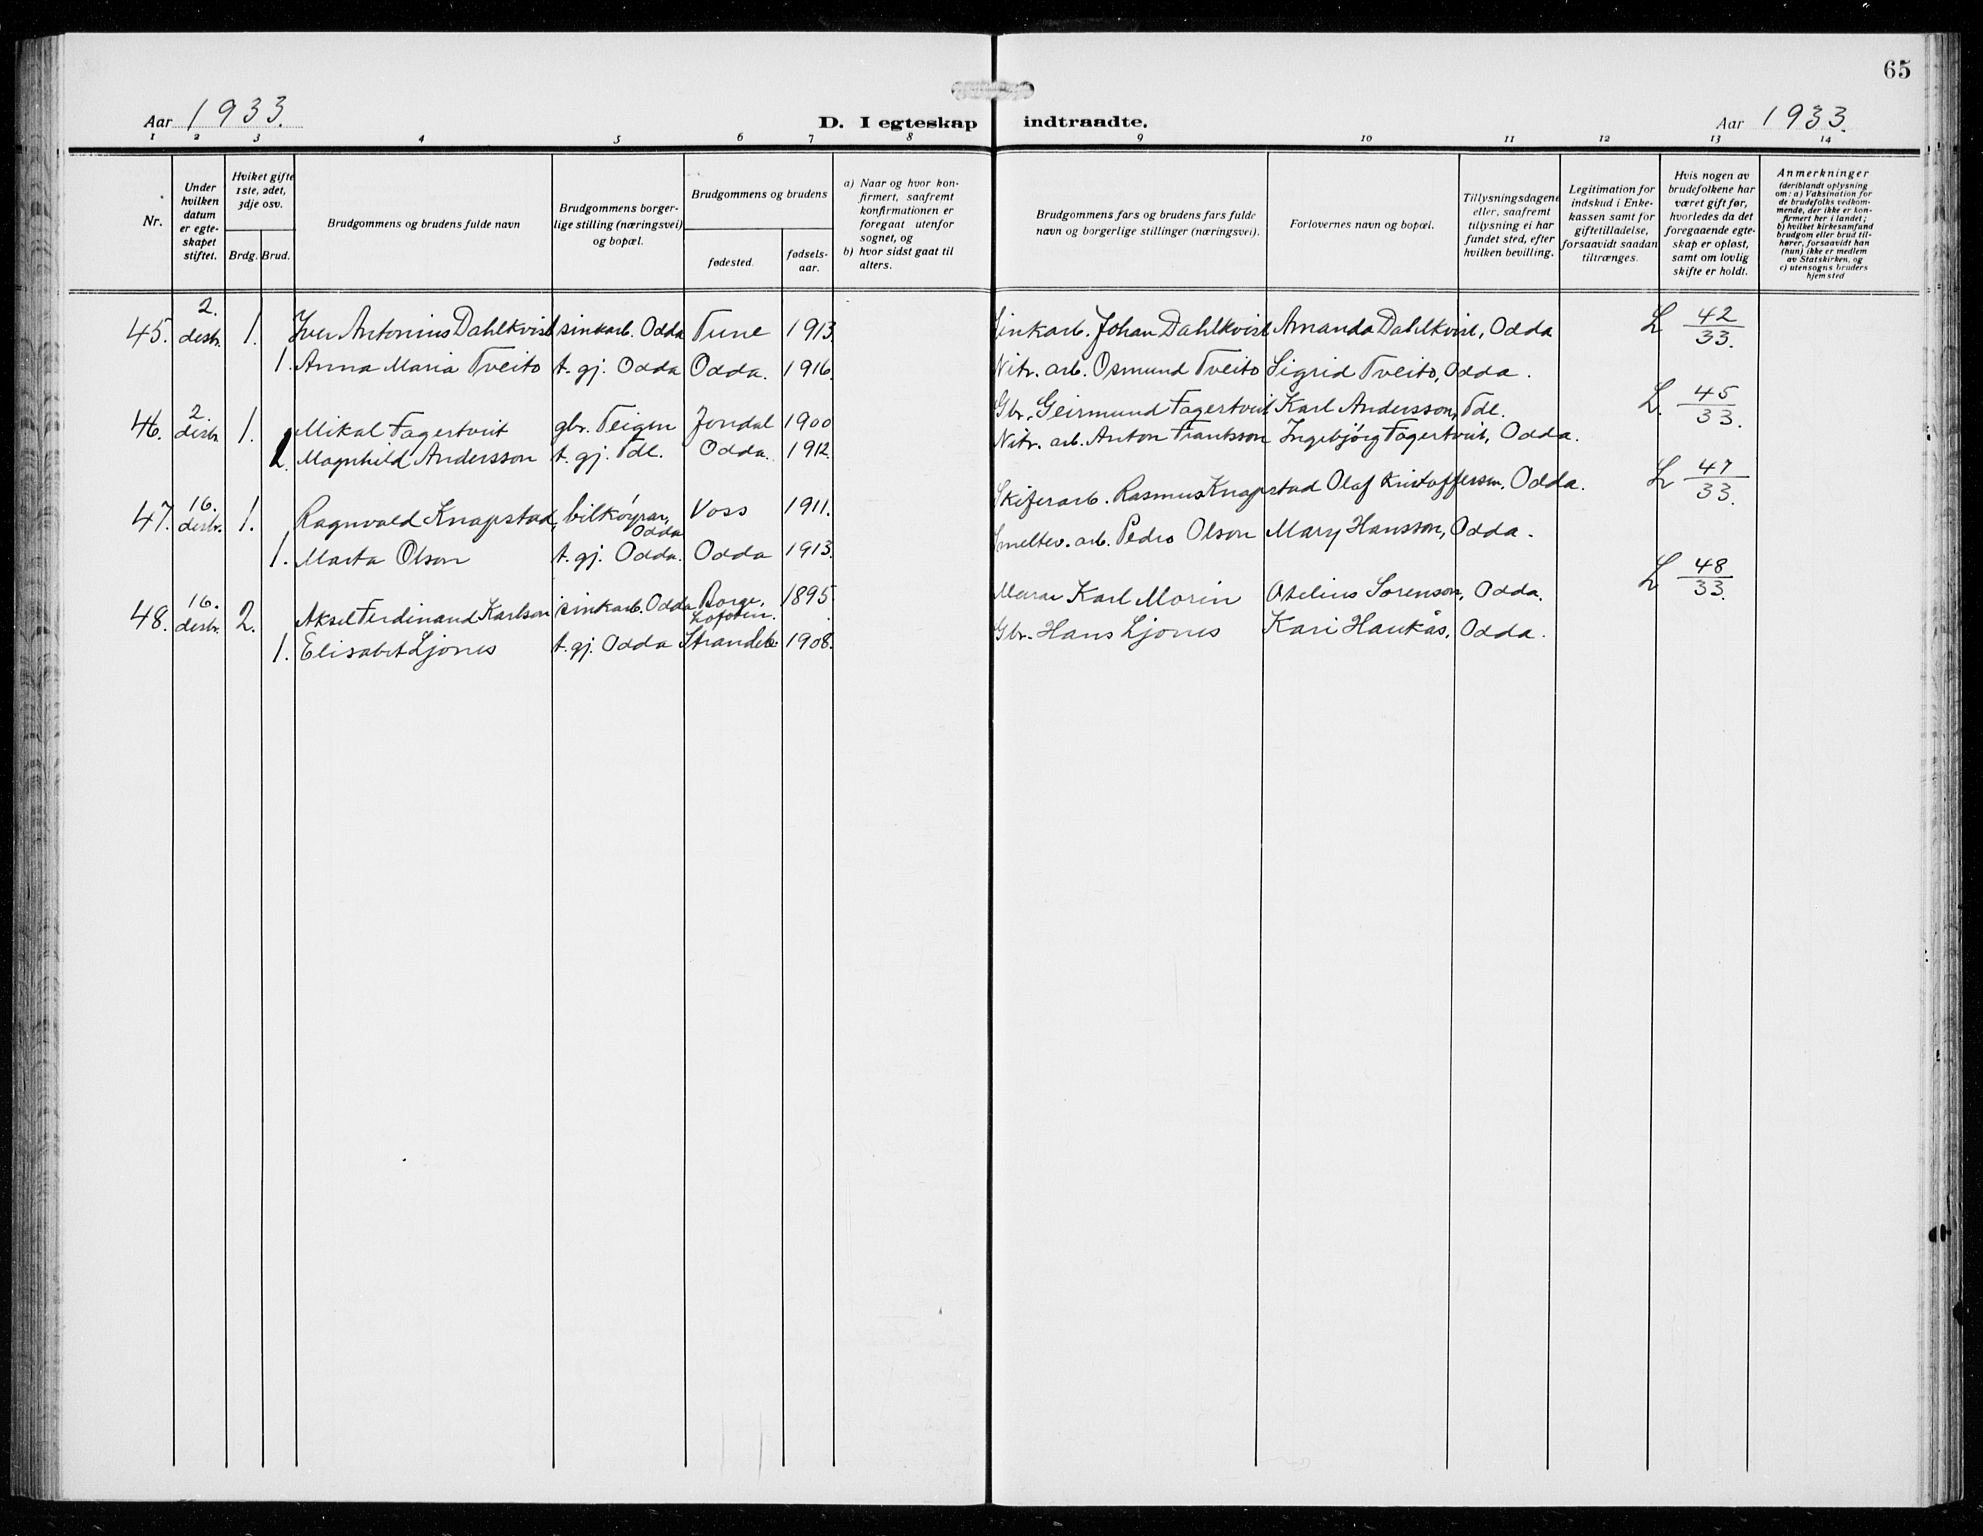 65
Aar 1933.
D. I egteskap indtraadte.
Aar 1933.
1 2 3 4 5 6 7 8 9 10 11 12 13 14
Nr.
Under hvilken datum er egte-skapet stiftet.
Hviket gifte 1ste, 2det, 3dje osv.
Brdg. Brud.
Brudgommens og brudens fulde navn
Brudgommens borger-lige stilling (næringsvei) og bopæl.
Brudgommens og brudens
fødested.
fødsels-aar.
a) Naar og hvor kon-firmert, saafremt konfirmationen er foregaat utenfor sognet, og
b) hvor sidst gaat til alters.
Brudgommens fars og brudens fars fulde navn og borgerlige stillinger (næringsvei).
Forlovernes navn og bopæl.
Tillysningsdagene eller, saafremt tillysning ei har fundet sted, efter hvilken bevilling.
Legitimation for indskud i Enke-kassen samt for giftetilladelse, forsaavidt saadan tiltrænges.
Hvis nogen av brudefolkene har været gift før, hvorledes da det foregaaende egte-skap er opløst, samt om lovlig skifte er holdt.
Anmerkninger
(deriblandt oplysning om: a) Vaksination for de brudefolks vedkom-mende, der ikke er kon-firmert her i landet; b) hvilket kirkesamfund brudgom eller brud til-hører, forsaavidt han (hun) ikke er medlem av Statskirken, og c) utensogns bruders hjemsted
45. 2. desbr. 1. Iver Antonius Dahlkvist sinkarb. Odda Tune 1913. Sinkarb. Johan Dahlkvist Amanda Dahlkvist, Odda L 42/33.
1. Anna Maria Tveito t. gj. Odda Odda. 1916. Nitr. arb. Osmund Tveito Sigrid Tveito, Odda.
46. 2. desbr. 1. Mikal Fagertveit gbr. Teigen Jondal 1900 Gbr. Geirmund Fagertveit Karl Andersson, Tdl. L. 45/33.
1. Magnhild Andersson t. gj. Tdl. Odda. 1912. Nitr. arb. Anton Frantsson Ingebjörg Fagertveit, Odda.
47. 16. desbr. 1. Ragnvald Knapstad, bilköyrar, Odda Voss 1911. Skiferarb. Rasmus Knapstad Olaf Kristoffersen, Odda. L 47/33.
1. Marta Olson t. gj. Odda. Odda 1913. Smeltev. arb. Pedro Olson Mary Hansson, Odda.
48. 16. desbr. 2. Aksel Ferdinand Karlson sinkarb. Odda Borge, Lofoten. 1895 Murar Karl Morin Otelius Sorenson, Odda. L 48/33.
1. Elisabet Ljones t. gj. Odda Strandeb 1908. Gbr. Hans Ljones Kari Haukås, Odda.